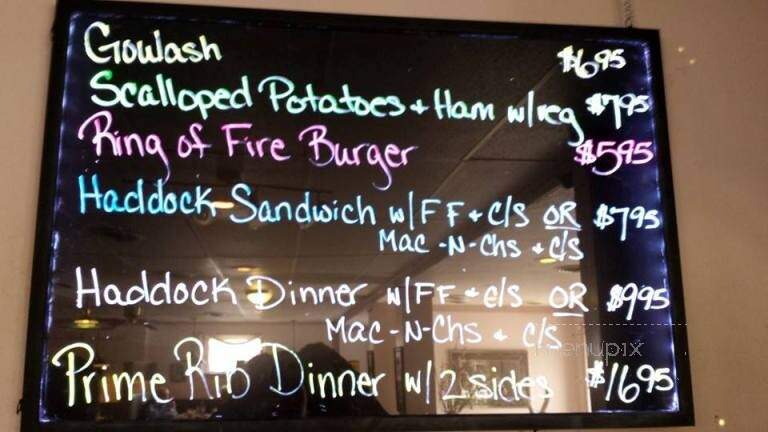 Goulash $6.95
Scalloped Potatoes + Ham w/veg $7.95
Ring of Fire Burger $5.95
Haddock Sandwich w/FF + C/S OR $7.95
Mac-N-Chs + C/S
Haddock Dinner w/FF + C/S OR $9.95
Mac-N-Chs + C/S
menupix
Prime Rib Dinner w/2 sides $16.95